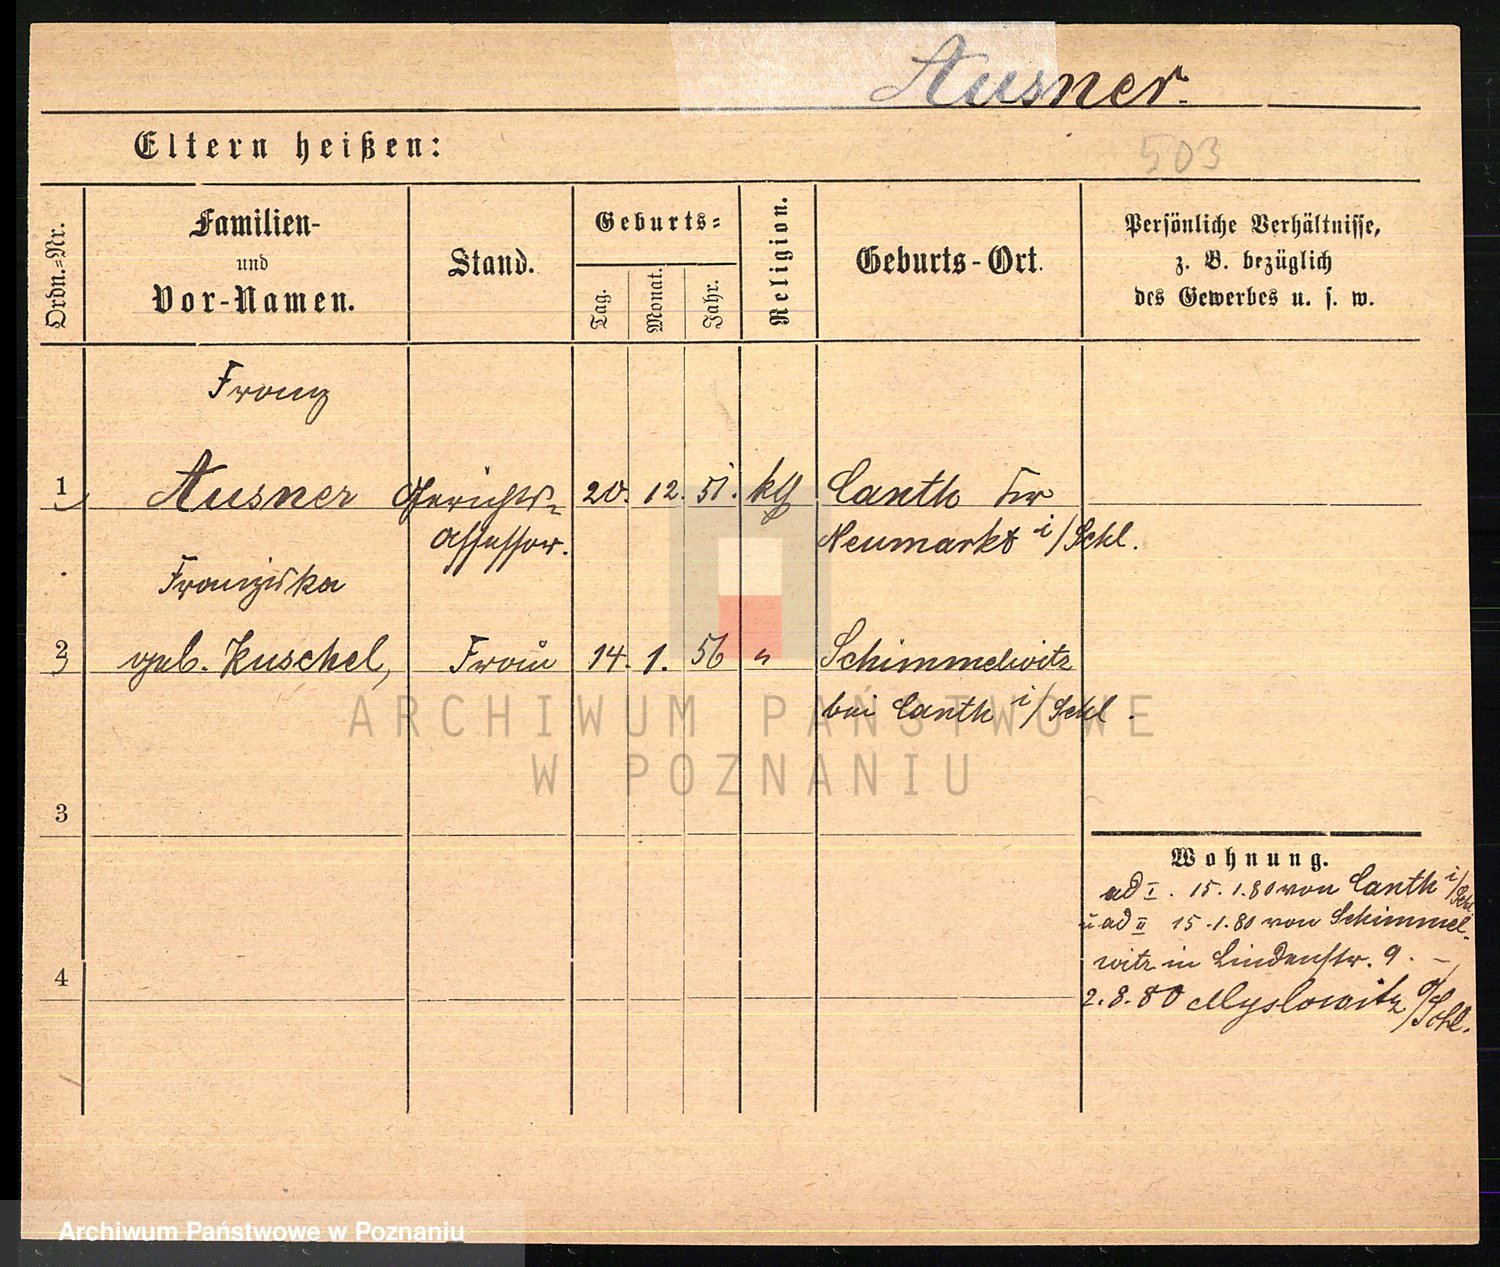 Ausner.
Eltern heißen:
503
Ordn.-Nr.
Familien-
und
Vor-Namen.
Stand.
Geburts-
Tag.
Monat.
Jahr.
Religion.
Geburts-Ort.
Persönliche Verhältnisse,
z. B. bezüglich
des Gewerbes u. s. w.
Franz
1 Ausner Gerichts- 20. 12. 51. kth Canth Kr
assessor. Neumarkt i/Schl.
Franziska
2 geb. Kuschel, Frau 14. 1. 56 " Schimmelwitz
bei Canth i/Schl.
3
4
Wohnung.
ad I. 15.1.80 von Canth i/Schl
u ad II 15.1.80 von Schimmel-
witz in Lindenstr. 9. –
2.8.80 Myslowitz O/Schl.
ARCHIWUM PAŃSTWOWE
W POZNANIU
Archiwum Państwowe w Poznaniu